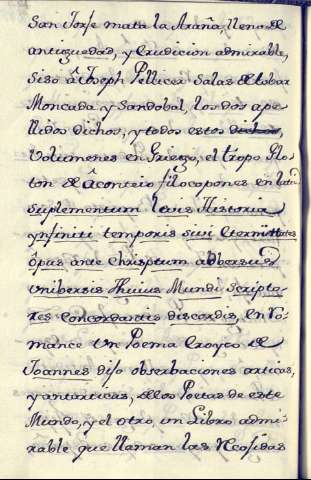 San Jorje mata la Araña, lleno de
antiguedad, y erudicion admirable,
Siso â Joseph Pellicer Salas de tobar
Moncada y Sandobal, los dos ape-
llidos dichos, y todos estos dichos,
Volumenes en Griego, el tropo Plo-
ton de âconteio filocapones en latin
Suplementum laus Historia
ynfiniti temporis sivi Eternitates
ôpus ante Christum adbersus
Unibersis Huius Mundi Scripto-
res Concordantis discordis, en Ro-
mance Un Poema Eroyco de
Joannes dijo obserbaciones articas,
y antarticas, de los Poetas de este
Mundo, y el otro, un Libro admi-
rable que llaman las Necesidas